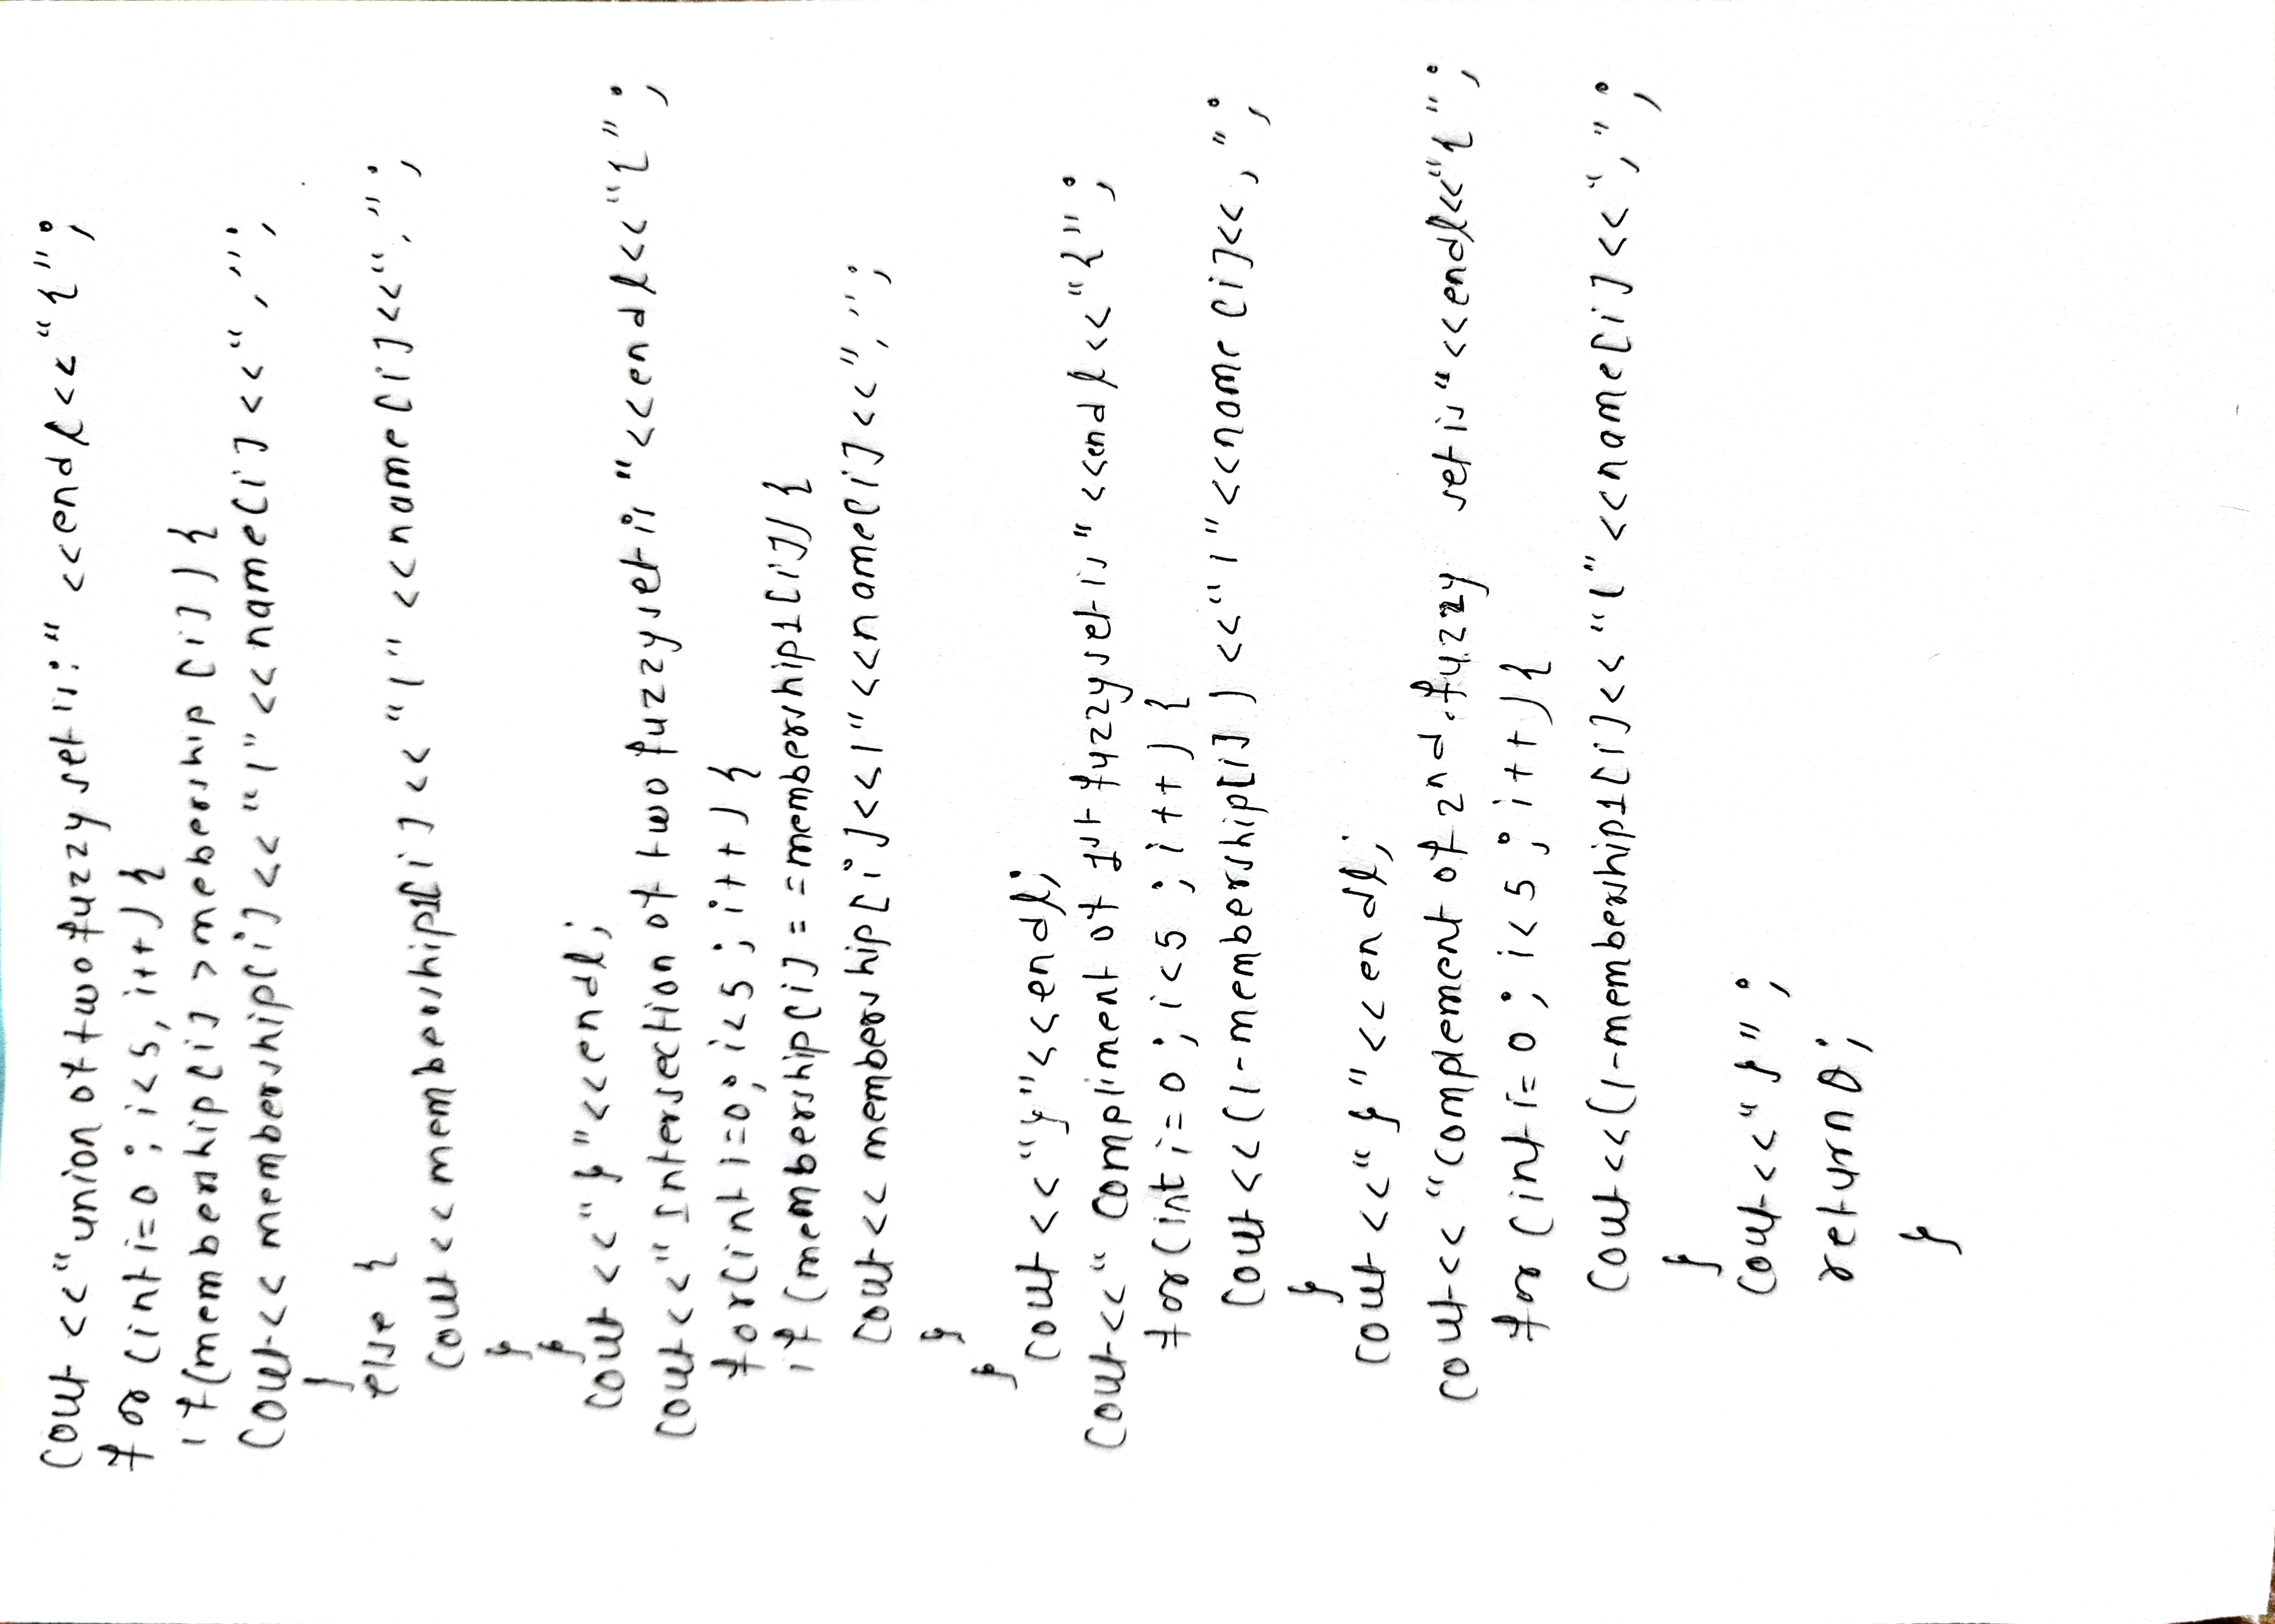 cout << "union of two fuzzy set is:" <<endl<< "{";
for (int i=0; i<5, i++) {
if(membership[i] >mebership [i] ) {
cout<< membership[i] << "|" << name[i] <<",";
}
else {
cout << membership1[i] << "|" <<name[i]<<",";
}
}
cout << "}"<<endl;
cout<<"Intersection of two fuzzy set is "<<endl<<"{";
for(int i=0; i<5; i++) {
if (membership[i] ==membership1[i]) {
cout<< membership[i]<<|"<<name[i]<<",";
}
}
cout << "}"<<endl;
cout<<" compliment of 1st fuzzy set is" <<endl<<"{";
for(int i=0; i<5 ; i++) {
cout <<(1-membership[i]) <<"|"<<name [i]<<,";
}
cout <<" }"<<endl;
cout<< "complement of 2nd fuzzy set is"<<endl<<"{";
for (int i=0; i<5; i++){
cout <<(1-membership1[i]<< "|" <<name[i] <<",";
}
cout<<"}";
return 0;
}